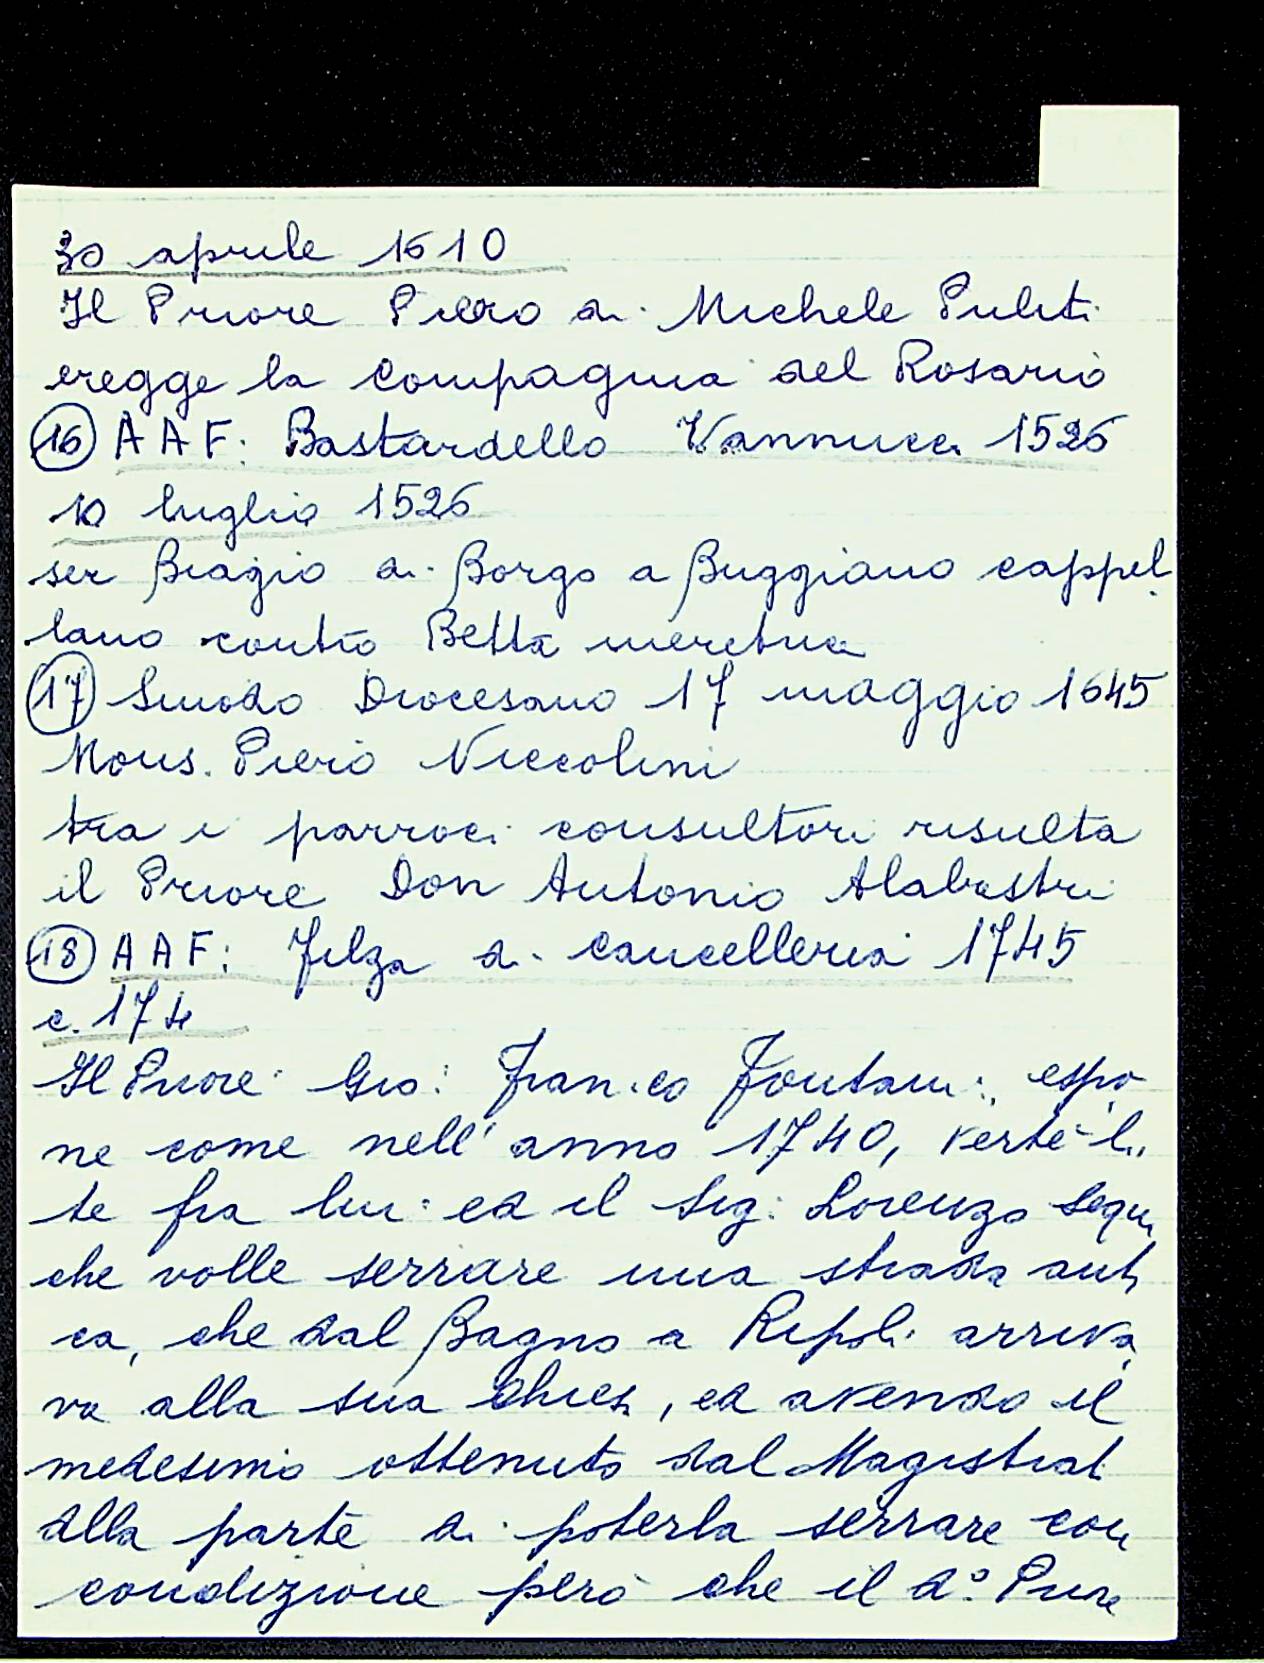 30 aprile 1610
Il Priore Piero di Michele Puliti
eregge la compagnia del Rosario
16 AAF: Bastardello Vannucci 1526
10 luglio 1526
ser Biagio di Borgo a Buggiano cappel
lano contro Betta meretrice
17 Sinodo Diocesano 17 maggio 1645
Mons. Piero Niccolini
tra i parroci consultori risulta
il Priore Don Antonio Alabastri
18 AAF: Filza di cancelleria 1745
c. 174
Il Priore Gio: Fran.co Fontani: espo
ne come nell'anno 1740, verté li
te fra lui ed il Sig: Lorenzo
che volle serrare una strada anti
ca, che dal Bagno a Ripoli arriva
va alla sua Chiesa, ed avendo il
medesimo ottenuto dal Magistrat
dlla parte di poterla serrare con
condizione però che il d.° Priore